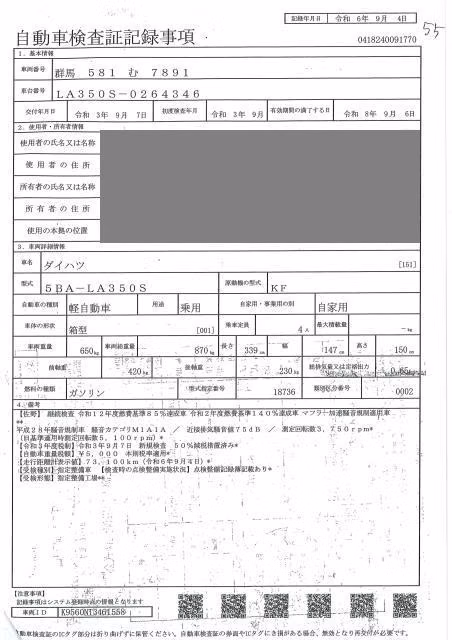 記録年月日 令和 6年 9月 4日
55
自動車検査証記録事項
0418240091770
1.基本情報
車両番号 群馬 581 む 7891
車台番号 LA350S-0264346
交付年月日 令和 3年 9月 7日 初度検査年月 令和 3年 9月 有効期間の満了する日 令和 8年 9月 6日
2.使用者・所有者情報
使用者の氏名又は名称
使用者の住所
所有者の氏名又は名称
所有者の住所
使用の本拠の位置
3.車両詳細情報
車名 ダイハツ [151]
型式 5BA-LA350S 原動機の型式 KF
自動車の種別 軽自動車 用途 乗用 自家用・事業用の別 自家用
車体の形状 箱型 [001] 乗車定員 4人 最大積載量 -kg
車両重量 650kg 車両総重量 870kg 長さ 339cm 幅 147cm 高さ 150cm
前軸重 420kg 後軸重 230kg 総排気量又は定格出力 0.65
燃料の種類 ガソリン 型式指定番号 18736 類別区分番号 0002
4.備考
【佐野】 継続検査 令和12年度燃費基準85%達成車 令和2年度燃費基準140%達成車 マフラー加速騒音規制適用車
**
平成28年騒音規制車 騒音カテゴリM1A1A / 近接排気騒音値75dB / 測定回転数3,750rpm*
(旧基準適用時測定回転数5,100rpm)*
【令和3年度税制】令和3年9月7日 新規検査 50%減税措置済み*
【自動車重量税額】¥5,000 本則税率適用*
【走行距離計表示値】73,100km(令和6年9月4日)*
【受検種別】指定整備車 【検査時の点検整備実施状況】点検整備記録簿記載あり*
【受検形態】指定整備工場**
【注意事項】
記録事項はシステム登録時点の情報となります
車両ID K9560NT3461558
自動車検査証のICタグ部分は折り曲げずに保管ください。自動車検査証の券面やICタグにき損がある場合、無効となり再交付が必要です。